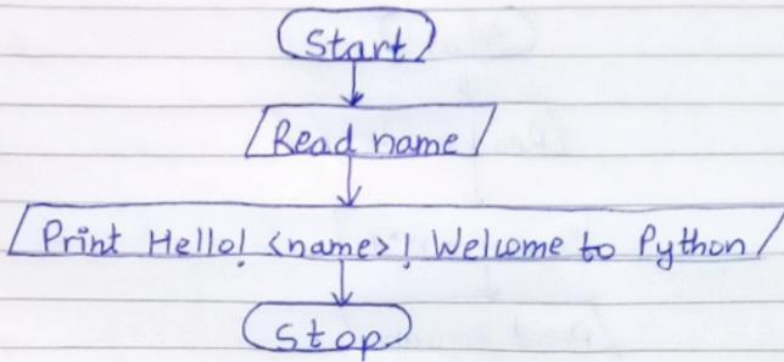 Start
Read name
Print Hello! <name>! Welcome to Python
Stop